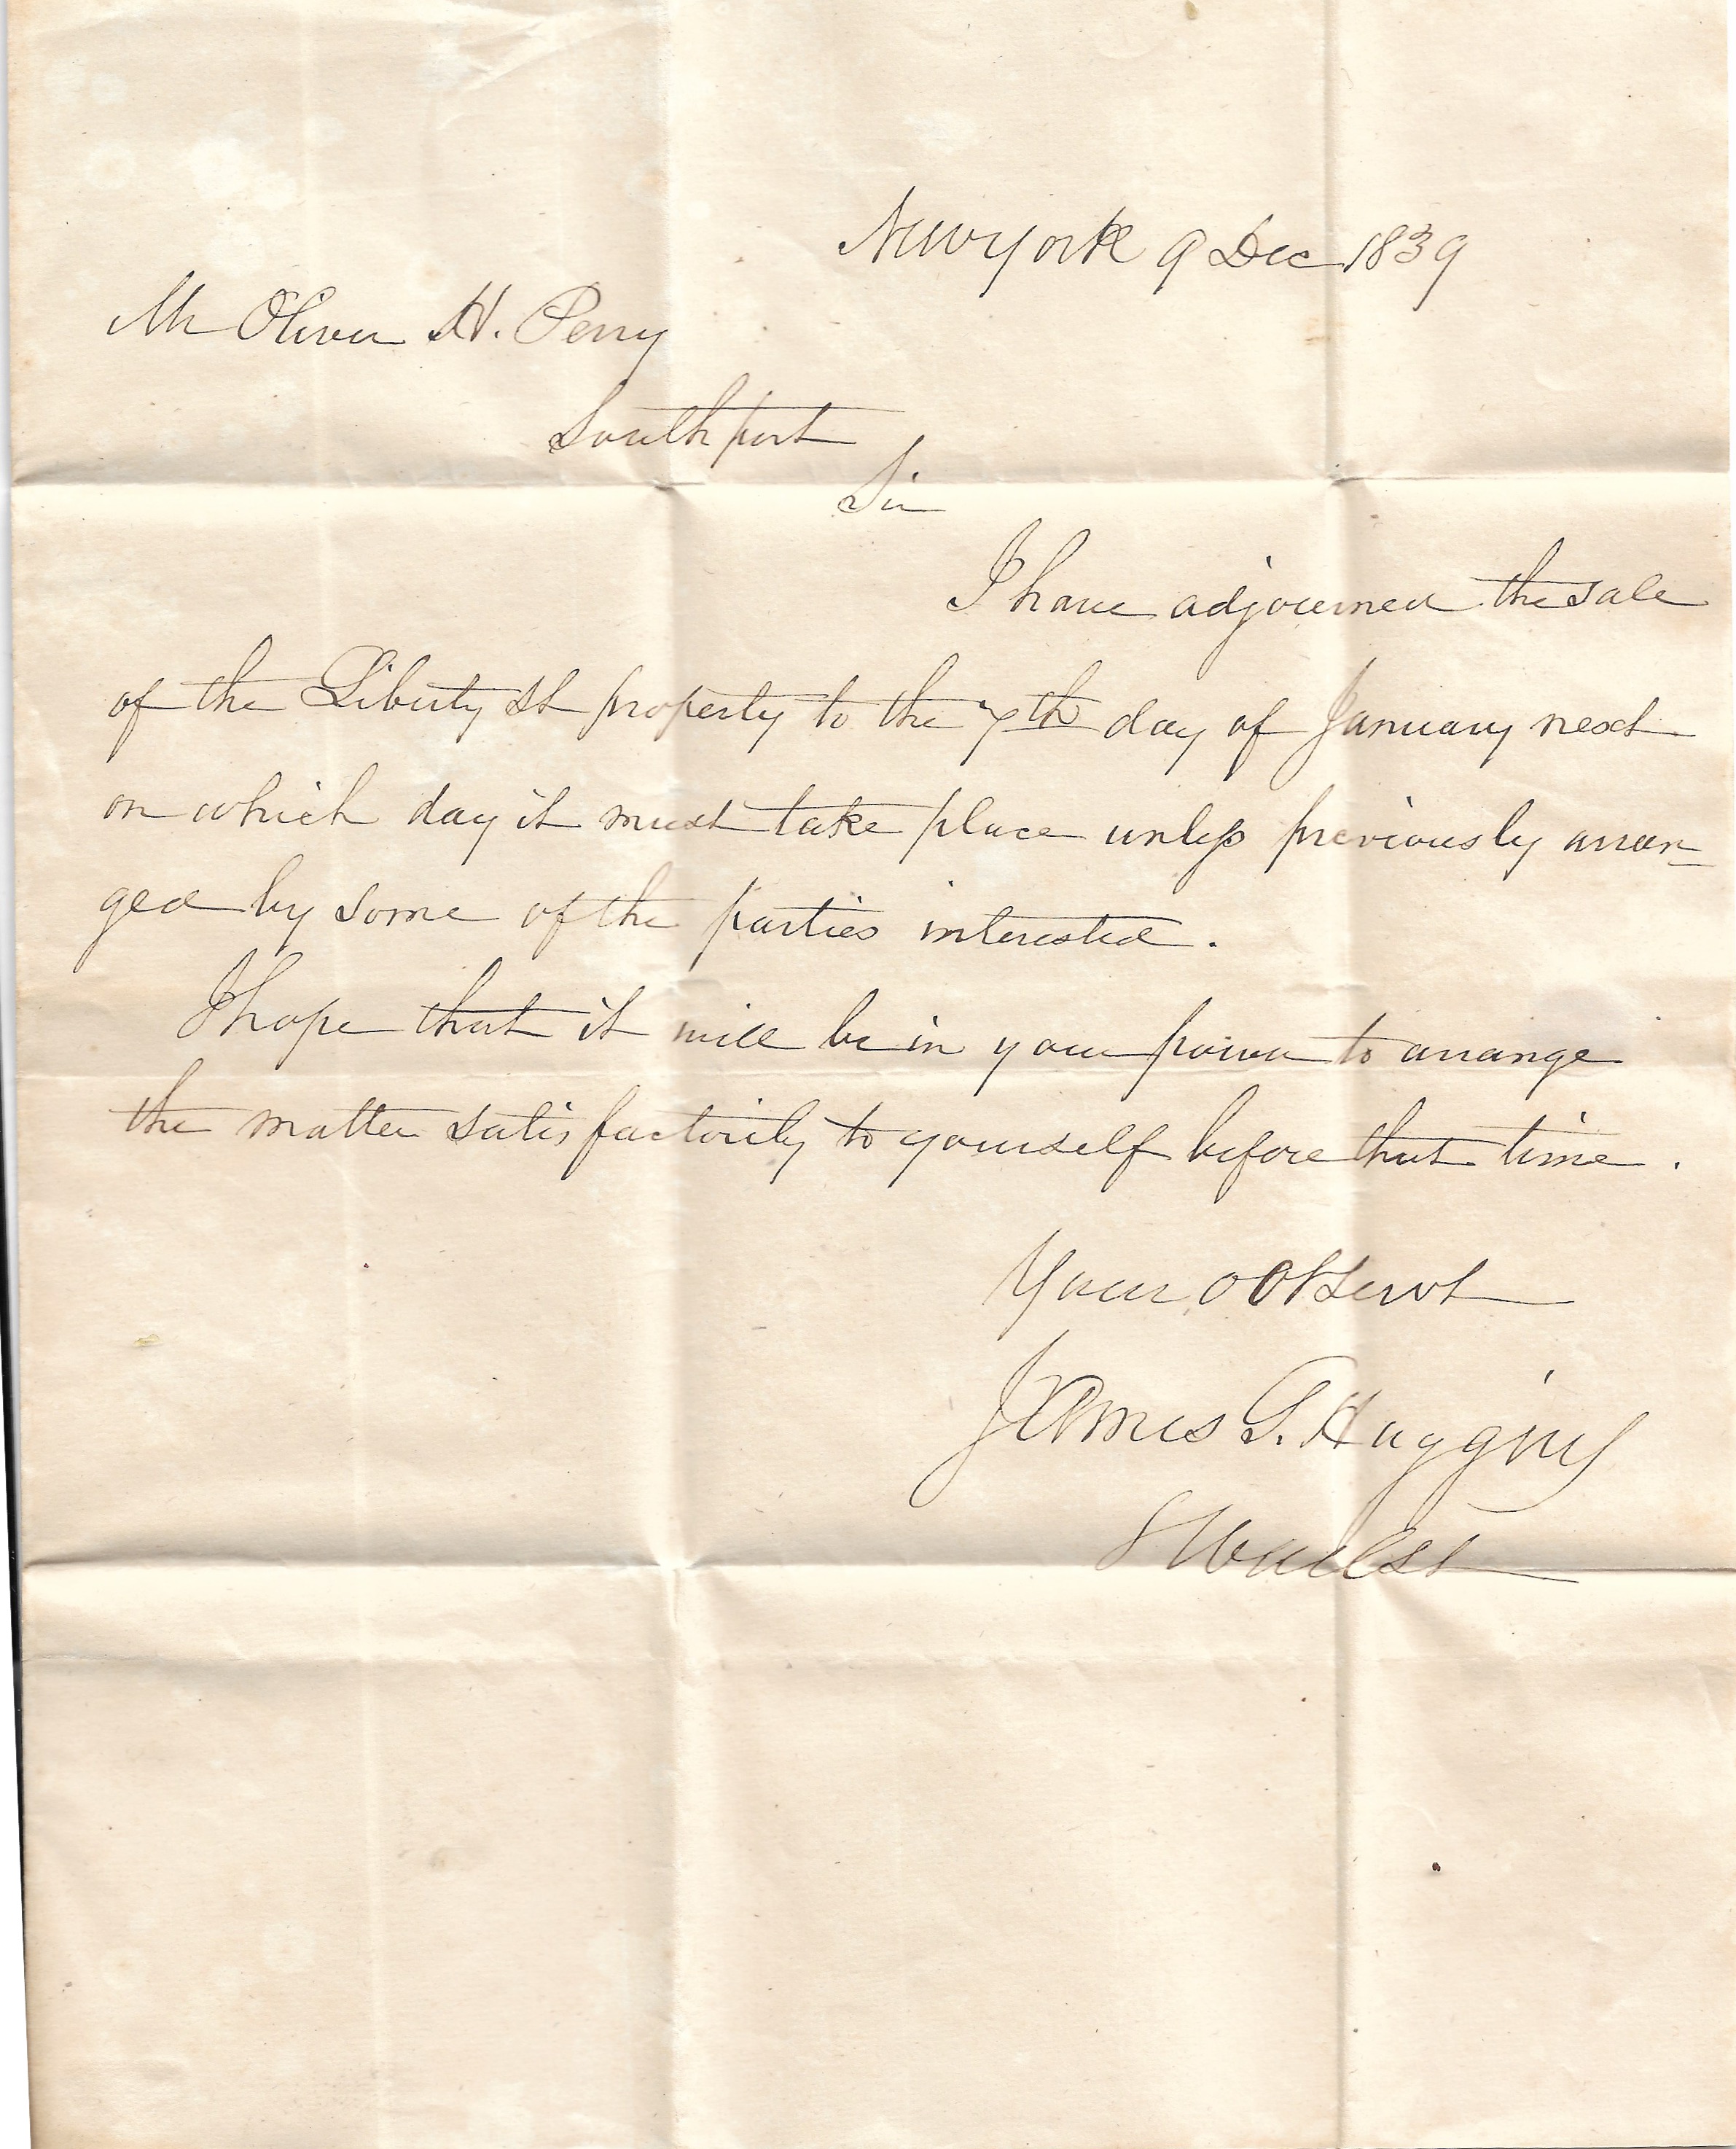 New York 9 Dec 1839
Mr Oliver H. Perry
Southport
Sir
I have adjourned the sale
of the Liberty St property to the 7th day of January next
on which day it must take place unless previously arran=
ged by some of the parties interested.
I hope that it will be in your power to arrange
the matter satisfactorily to yourself before that time.
Your Ob Servt
James G. Huggins
Wall St